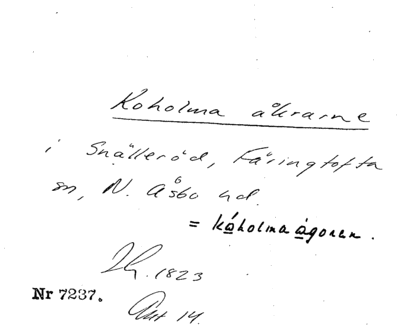 Koholma åkrarne
i Snälleröd, Färingtofta
sn, N. Åsbo hd.
= kåholma ågonen.
1823
Nr 7237.
Akt 14.